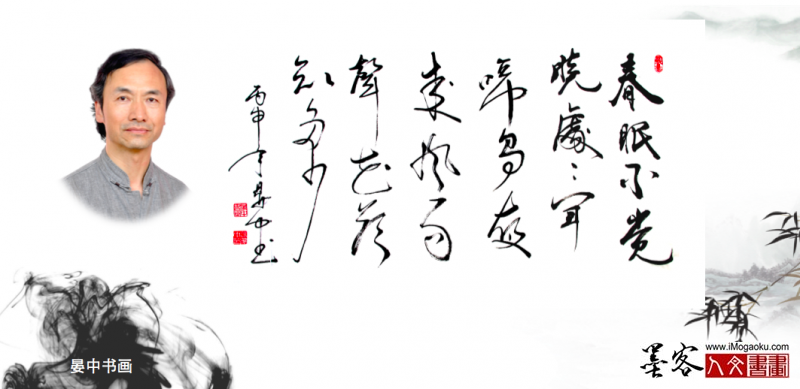 春眠不觉
晓處々闻
啼鸟夜
来风雨
聲花落
知多少
丙申
晏中书
晏中书画
墨客
www.iMogaoku.com
人文書畫